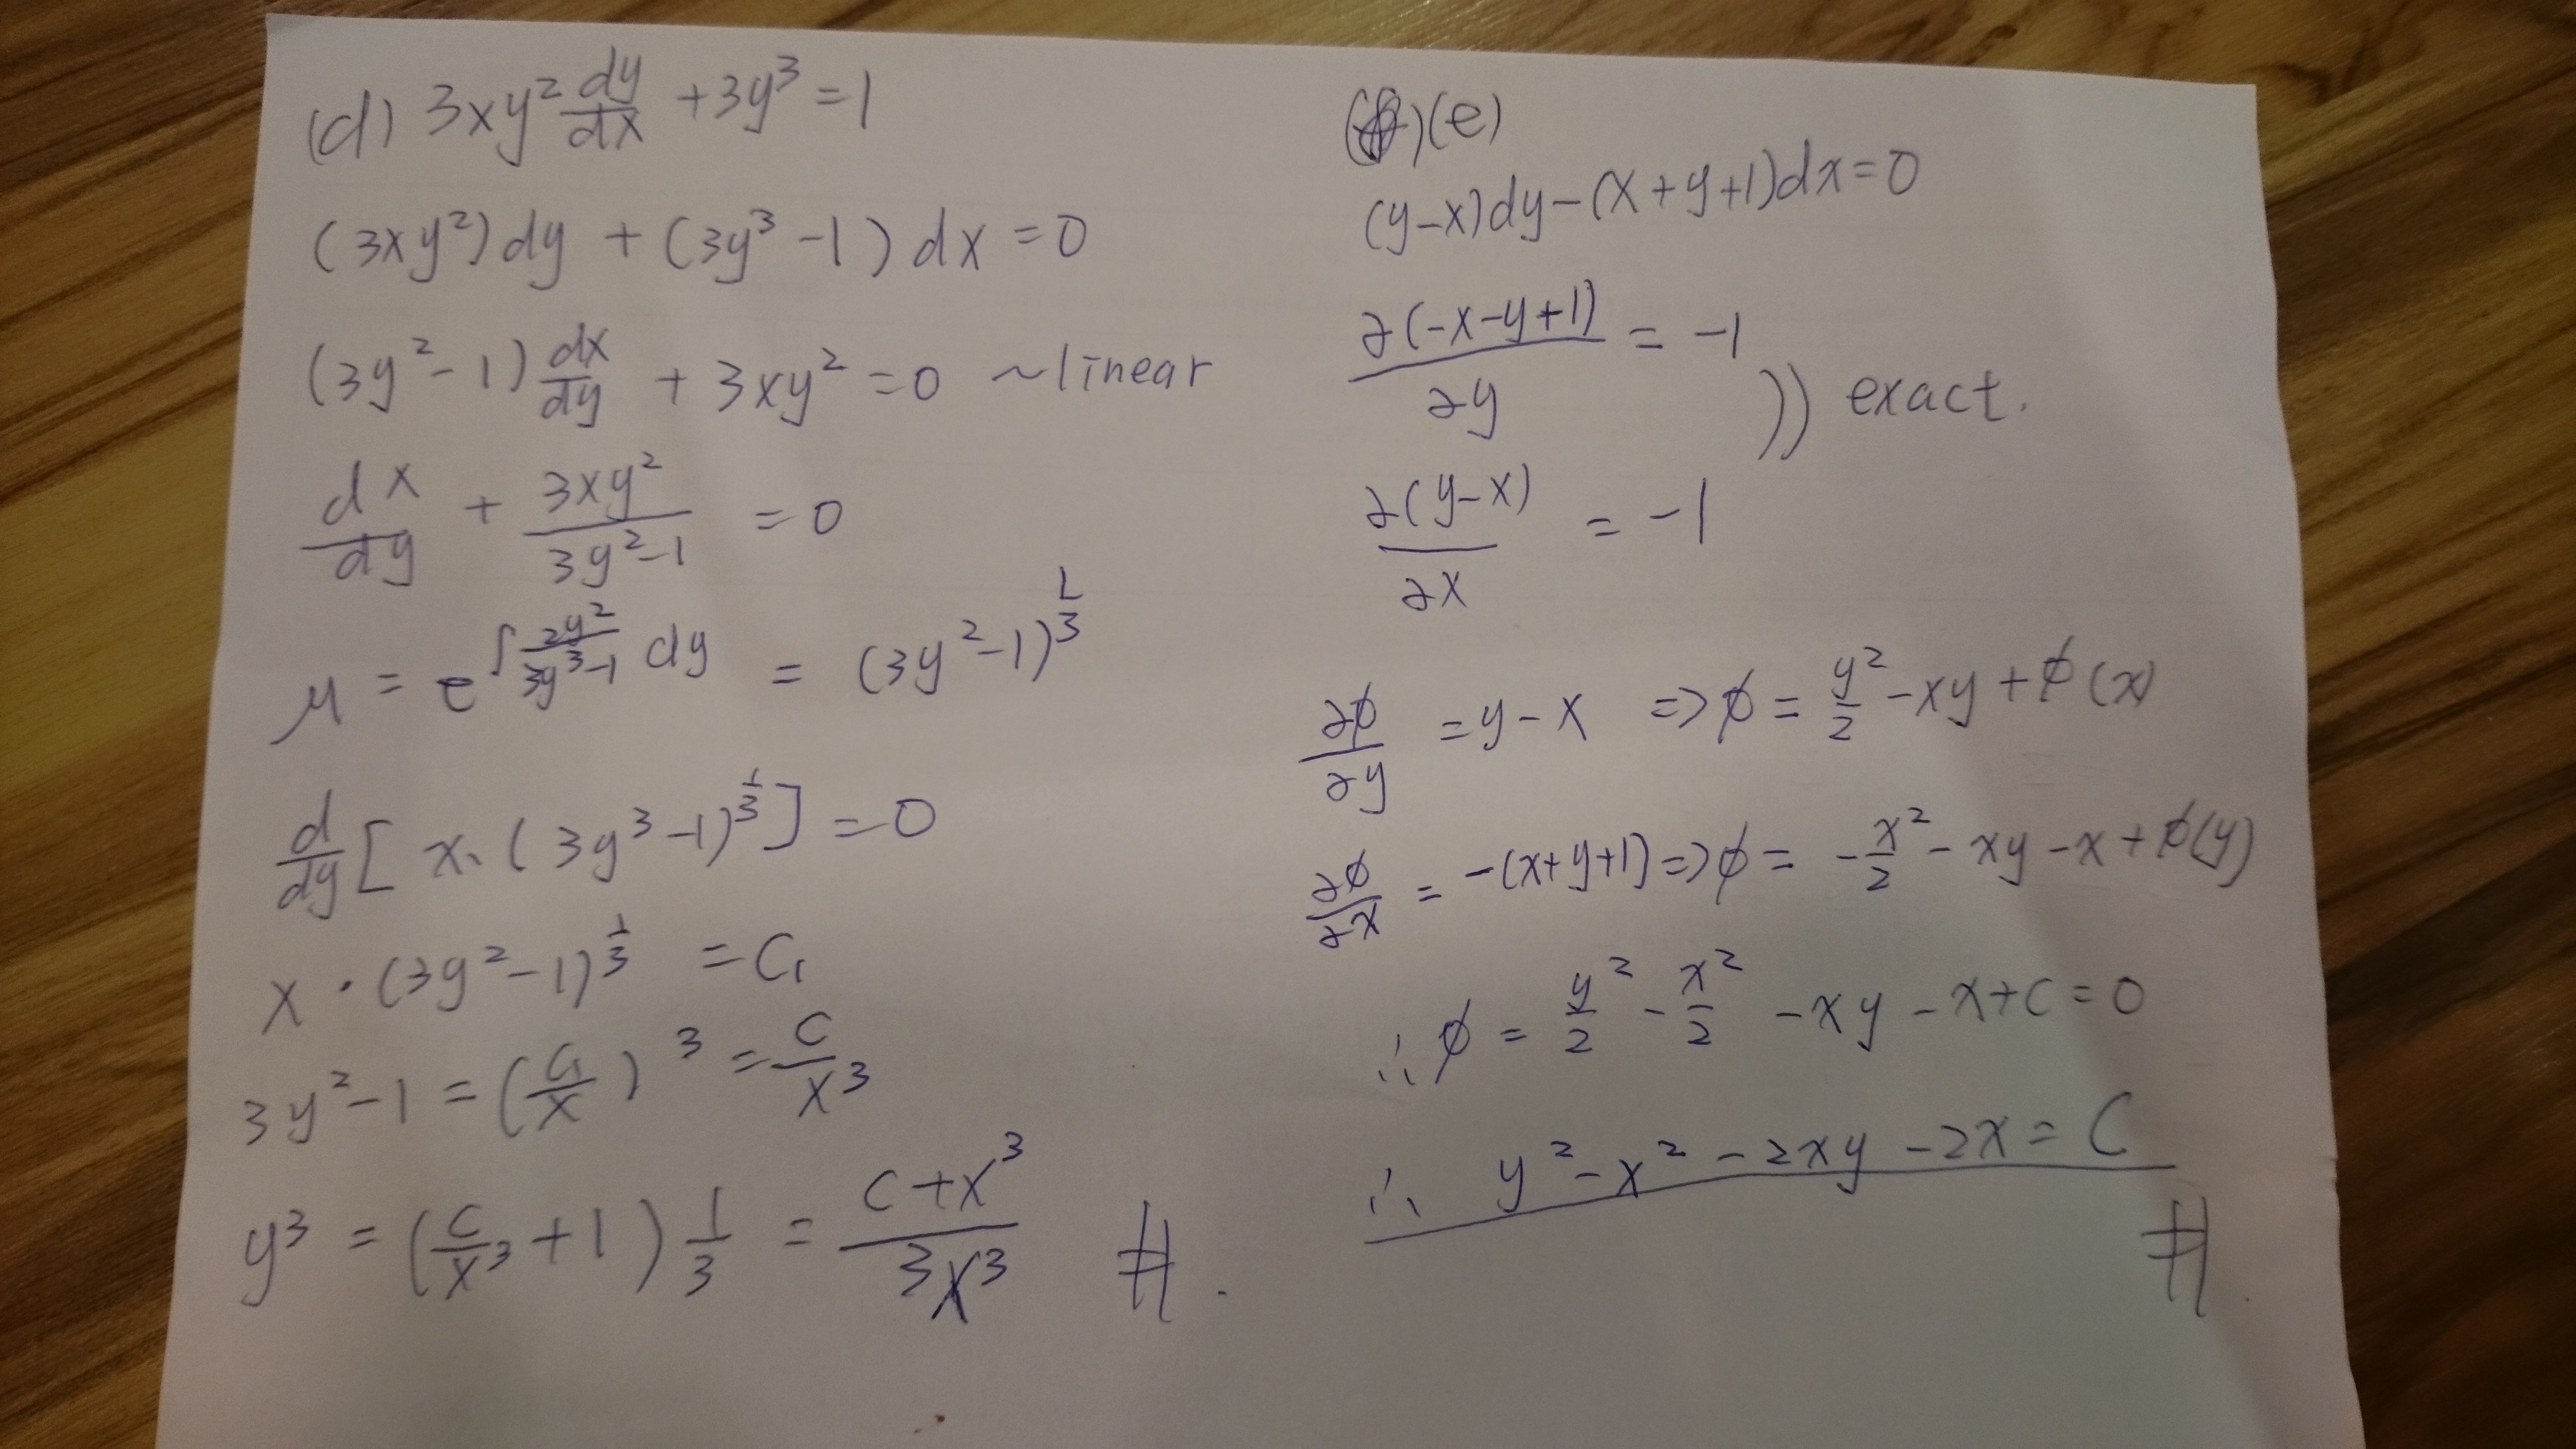 (d) 3xy² dy/dx + 3y³ = 1
(3xy²) dy + (3y³ - 1) dx = 0
(3y² - 1) dx/dy + 3xy² = 0 ~ linear
dx/dy + 3xy²/(3y² - 1) = 0
μ = e^(∫ 2y²/(3y³ - 1) dy) = (3y² - 1)^(1/3)
d/dy [x · (3y³ - 1)^(1/3)] = 0
x · (3y² - 1)^(1/3) = C₁
3y² - 1 = (C₁/x)³ = C/x³
y³ = (C/x³ + 1) 1/3 = (C + x³)/(3x³) #.
(e)
(y-x)dy - (x+y+1)dx = 0
∂(-x-y+1)/∂y = -1
)) exact.
∂(y-x)/∂x = -1
∂ϕ/∂y = y - x => ϕ = y²/2 - xy + ϕ(x)
∂ϕ/∂x = -(x+y+1) => ϕ = -x²/2 - xy - x + ϕ(y)
∴ ϕ = y²/2 - x²/2 - xy - x + C = 0
∴ y² - x² - 2xy - 2x = C
#.